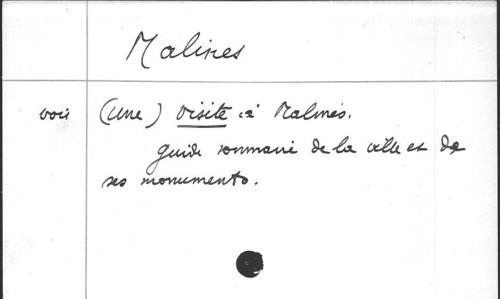 Malines
voir (Une) visite à Malines.
Guide sommaire de la ville et de
ses monuments.